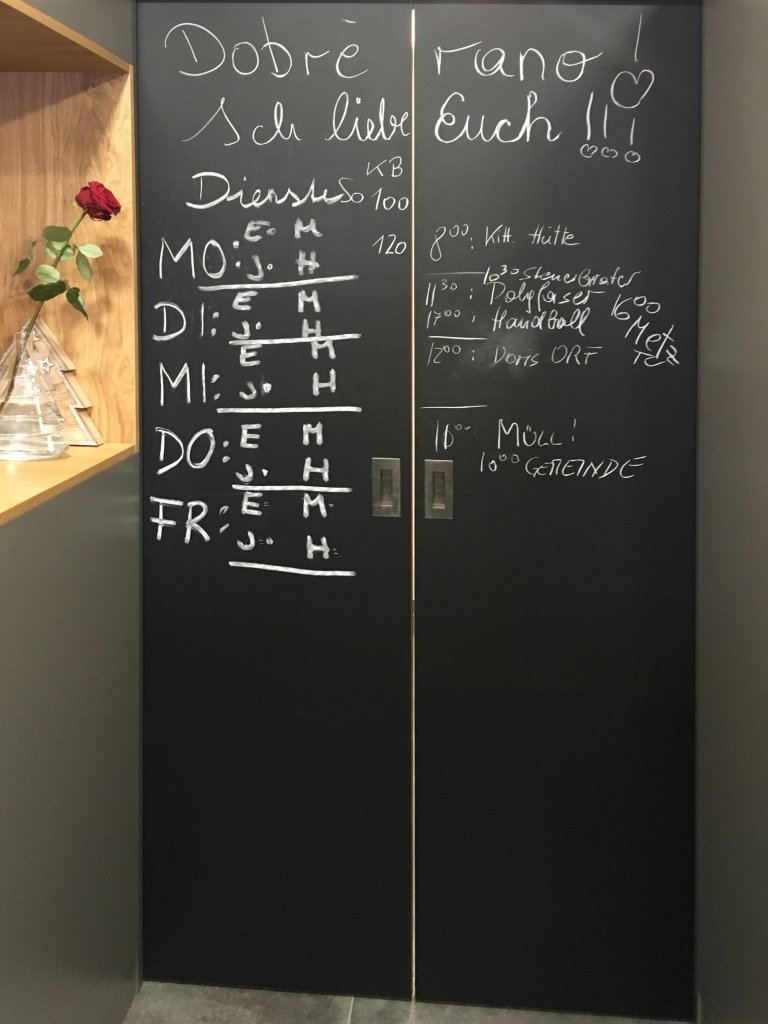 Dobrè rano!
Ich liebe Euch!!!
KB
Dienste So 100
120
MO: E. M
J. H
DI: E M
J. H
MI: E M
J. H
DO: E M
J. H
FR: E M
J. H
8⁰⁰: Kitt. Hütte
10³⁰ Steuerberater
11³⁰:
17⁰⁰: Handball
16⁰⁰ Metz
12⁰⁰: Doris ORF
MÜLL!
10⁰⁰ GEMEINDE